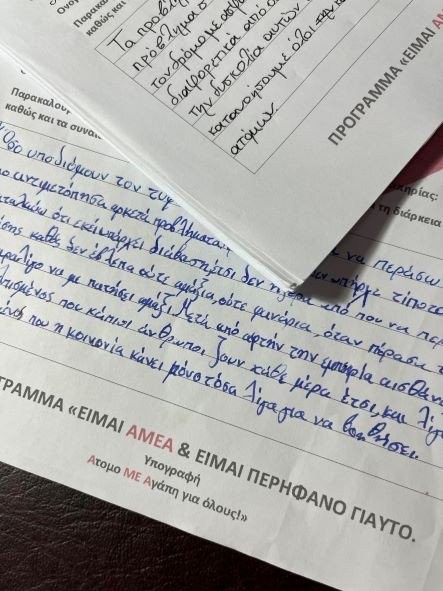 Ονομ
Παρακαλ
καθώς και
Τα προβλ
πρόβλημα σ
τον δρόμο με ασφ
διαφορετικά από ό
την δυσκολία αυτών τ
κατανοήσουμε όλοι την
ατόμων.
ΠΡΟΓΡΑΜΜΑ «ΕΙΜΑΙ ΑΜ
Παρακαλου
καθώς και τα συναι
ληρίας:
τη διάρκεια
Όσο υποδυόμουν τον τυφ
να περάσω
αντιμετώπισα αρκετά προβλήματα
υπήρχε τίποτε
ότι εκεί υπάρχει διάβαση
δεν
από που να περ
καθώς δεν έβλεπα ούτε αμάξια, ούτε φανάρια, όταν πέρασα
παραλίγο να με πατήσει αμάξι. Μετά από αυτήν την εμπειρία αισθάν
που κάποιοι άνθρωποι ζουν κάθε μέρα έτσι, και λίγ
που η κοινωνία κάνει μόνο τόσα λίγα για να βοηθήσει.
ΓΡΑΜΜΑ «ΕΙΜΑΙ ΑΜΕΑ & ΕΙΜΑΙ ΠΕΡΗΦΑΝΟ ΓΙΑΥΤΟ.
Υπογραφή
Ατομο ΜΕ Αγάπη για όλους!»